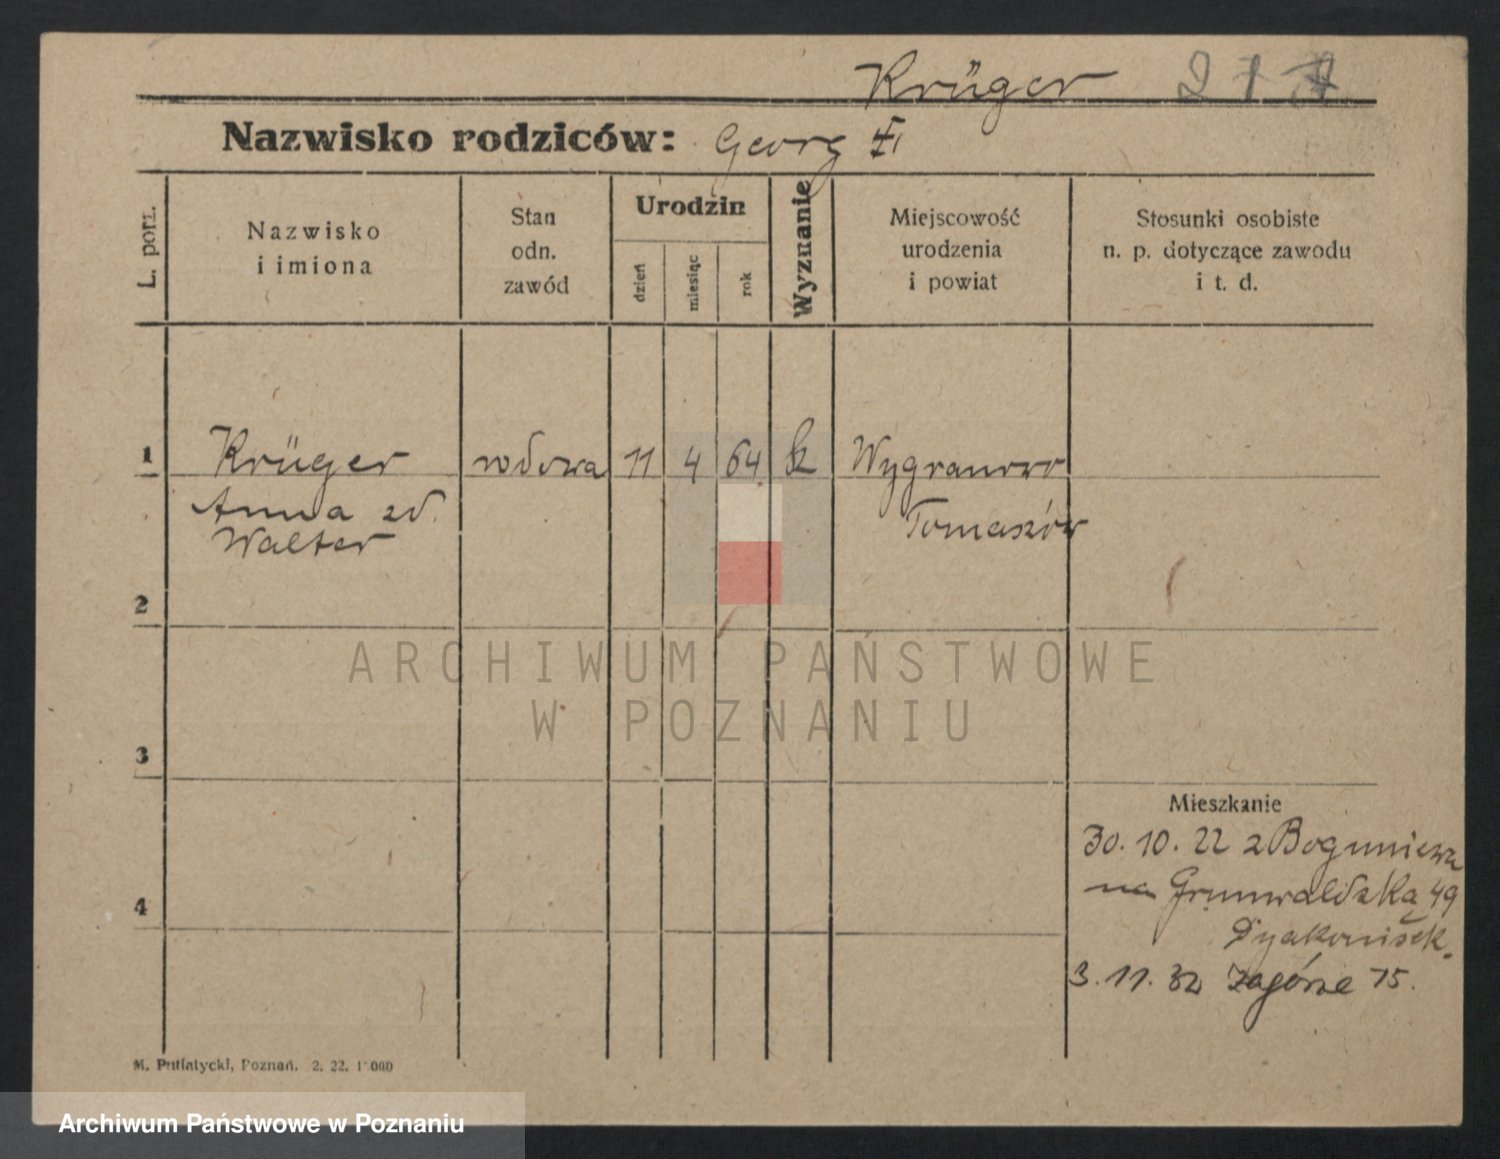 Krüger
Nazwisko rodziców: Georg
L. porz.
Nazwisko
i imiona
Stan
odn.
zawód
Urodzin
dzień
miesiąc
rok
Wyznanie
Miejscowość
urodzenia
i powiat
Stosunki osobiste
n. p. dotyczące zawodu
i t. d.
1 Krüger wdowa 11 4 64 Wygranowo
Anna zd. Tomaszów
Walter
2
ARCHIWUM PAŃSTWOWE
W POZNANIU
3
Mieszkanie
30. 10. 22 z Boguniewa
na Grunwaldzką 49
4
Dyakonisek.
3. 11. 32 Zagórze 15.
M. Putiatycki, Poznań. 2. 22.
Archiwum Państwowe w Poznaniu